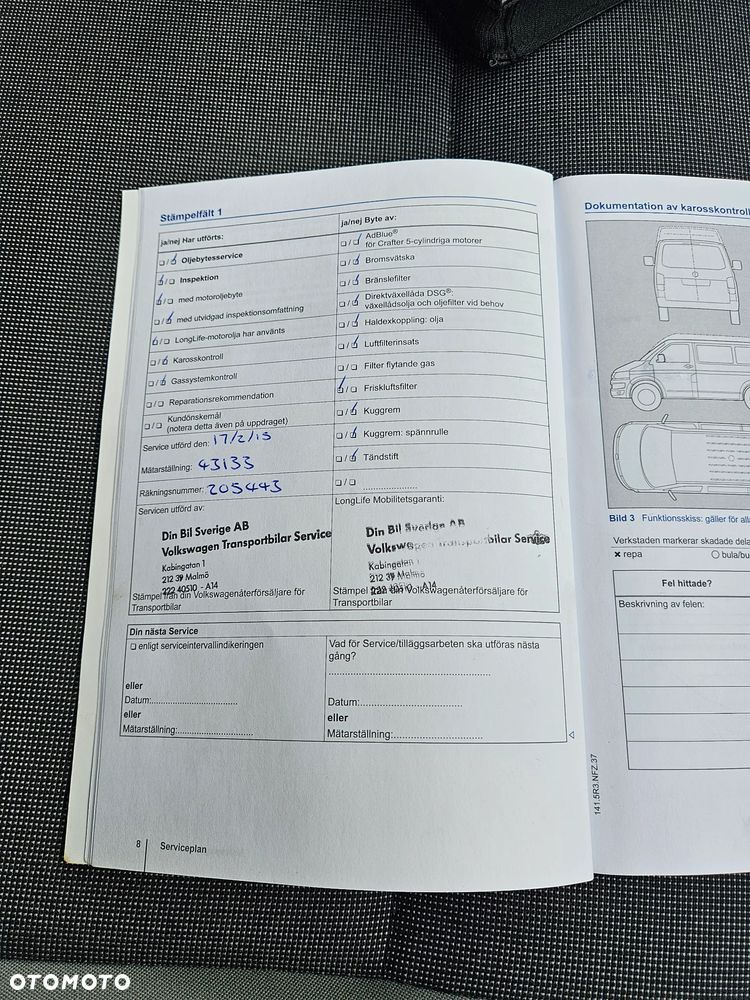 Stämpelfält 1
ja/nej Har utförts:
❏/❏ Oljebytesservice
❏/❏ Inspektion
❏/❏ med motoroljebyte
❏/❏ med utvidgad inspektionsomfattning
❏/❏ LongLife-motorolja har använts
❏/❏ Karosskontroll
❏/❏ Gassystemkontroll
❏/❏ Reparationsrekommendation
❏/❏ Kundönskemål
(notera detta även på uppdraget)
Service utförd den: 17/2/15
Mätarställning: 43133
Räkningsnummer: 205443
Servicen utförd av:
Din Bil Sverige AB
Volkswagen Transportbilar Service
Kabingatan 1
212 39 Malmö
222 40510 - A14
Stämpel från din Volkswagenåterförsäljare för
Transportbilar
ja/nej Byte av:
❏/❏ AdBlue®
för Crafter 5-cylindriga motorer
❏/❏ Bromsvätska
❏/❏ Bränslefilter
❏/❏ Direktväxellåda DSG®:
växellådsolja och oljefilter vid behov
❏/❏ Haldexkoppling: olja
❏/❏ Luftfilterinsats
❏/❏ Filter flytande gas
❏/❏ Friskluftsfilter
❏/❏ Kuggrem
❏/❏ Kuggrem: spännrulle
❏/❏ Tändstift
❏/❏ ....................
LongLife Mobilitetsgaranti:
Din Bil Sverige AB
Volkswagen Transportbilar Service
Kabingatan 1
212 39 Malmö
222 40510 - A14
Stämpel från din Volkswagenåterförsäljare för
Transportbilar
Din nästa Service
❏ enligt serviceintervallindikeringen
eller
Datum:..............................
eller
Mätarställning:..........................
Vad för Service/tilläggsarbeten ska utföras nästa
gång?
......................................................
Datum:....................................
eller
Mätarställning:..............................
8 Serviceplan
Dokumentation av karosskontroll
Bild 3 Funktionsskiss: gäller för
Verkstaden markerar skadade
✖ repa
Fel hittade?
Beskrivning av felen:
141.5R3.NFZ.37
OTOMOTO